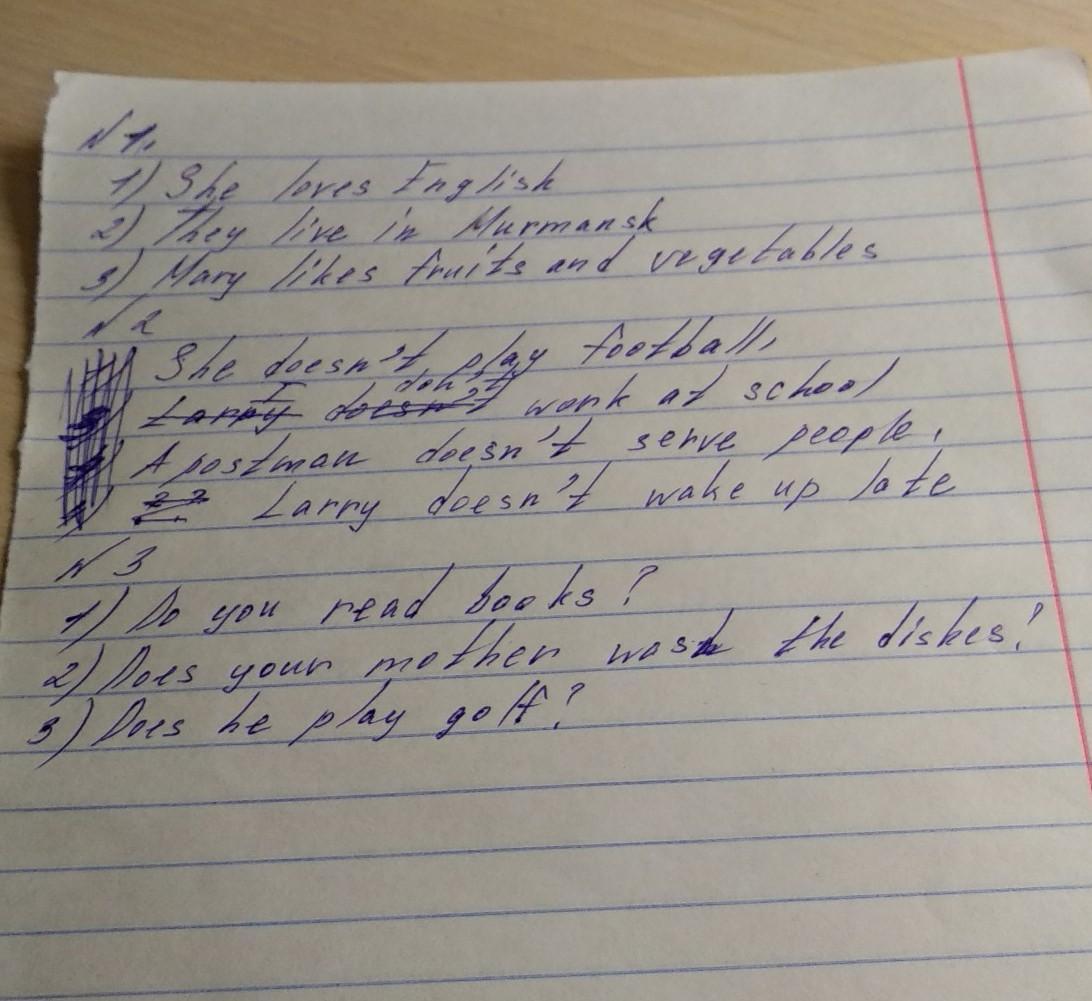 N 1.
1) She loves English
2) They live in Murmansk
3) Mary likes fruits and vegetables
N 2
She doesn't play football.
I don't work at school
A postman doesn't serve people.
Larry doesn't wake up late
N 3
1) Do you read books?
2) Does your mother wash the dishes?
3) Does he play golf?